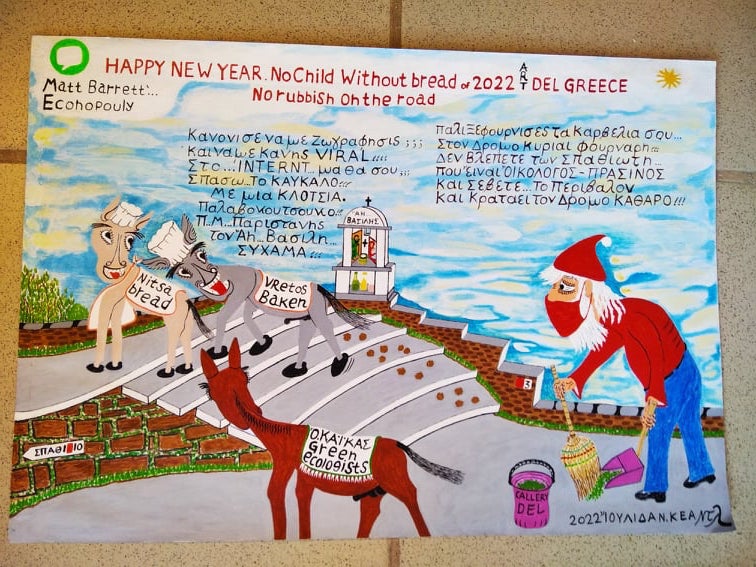 Matt Barrett'...
Econopouly
HAPPY NEW YEAR. No Child Without bread of 2022 ART DEL GREECE
No rubbish on the road
Κανονισε να με Ζωγραφησις ;;;
και να με κανης VIRAL !!!!
Στο... INTERNT.. μα θα σου ,,,
Σπασω.. Το ΚΑΥΚΑΛΟ !!!
Με μια ΚΛΟΤΣΙΑ.
Παλαβοκουτσουνο !!
Π.Μ... Παριστανης
τον Αη... Βασιλη...
ΣΥΧΑΜΑ !!!
παλι Ξεφουρνισες τα Καρβελια σου...
Στον Δρομο Κυριαι φουρναρη...
ΔΕΝ ΒλΕΠΕΤΕ των Σπαθιωτη...
που ειναι ΟΙΚΟΛΟΓΟΣ - ΠΡΑΣΙΝΟΣ
Και Σεβετε... Το Περιβαλον
Και Κραταει τον Δρομο ΚΑΘΑΡΟ !!!
ΑΗ.
ΒΑΣΙΛΗΣ
Nitsa
bread
Vretos
Baken
3
Ο. ΚΑΪΚΑΣ
Green
ecologists
ΣΠΑΘΙ
ΙΟ
CALLERY
DEL
2022 ΙΟΥΛΙΔΑ Ν. ΚΕΑ